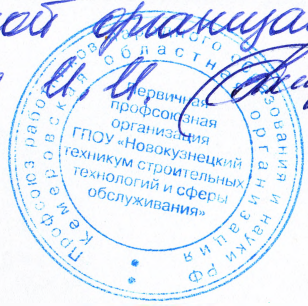 ной организац
И.И.
Профсоюз работников народного образования и науки РФ
Кемеровская областная организация
Первичная
профсоюзная
организация
ГПОУ «Новокузнецкий
техникум строительных
технологий и сферы
обслуживания»